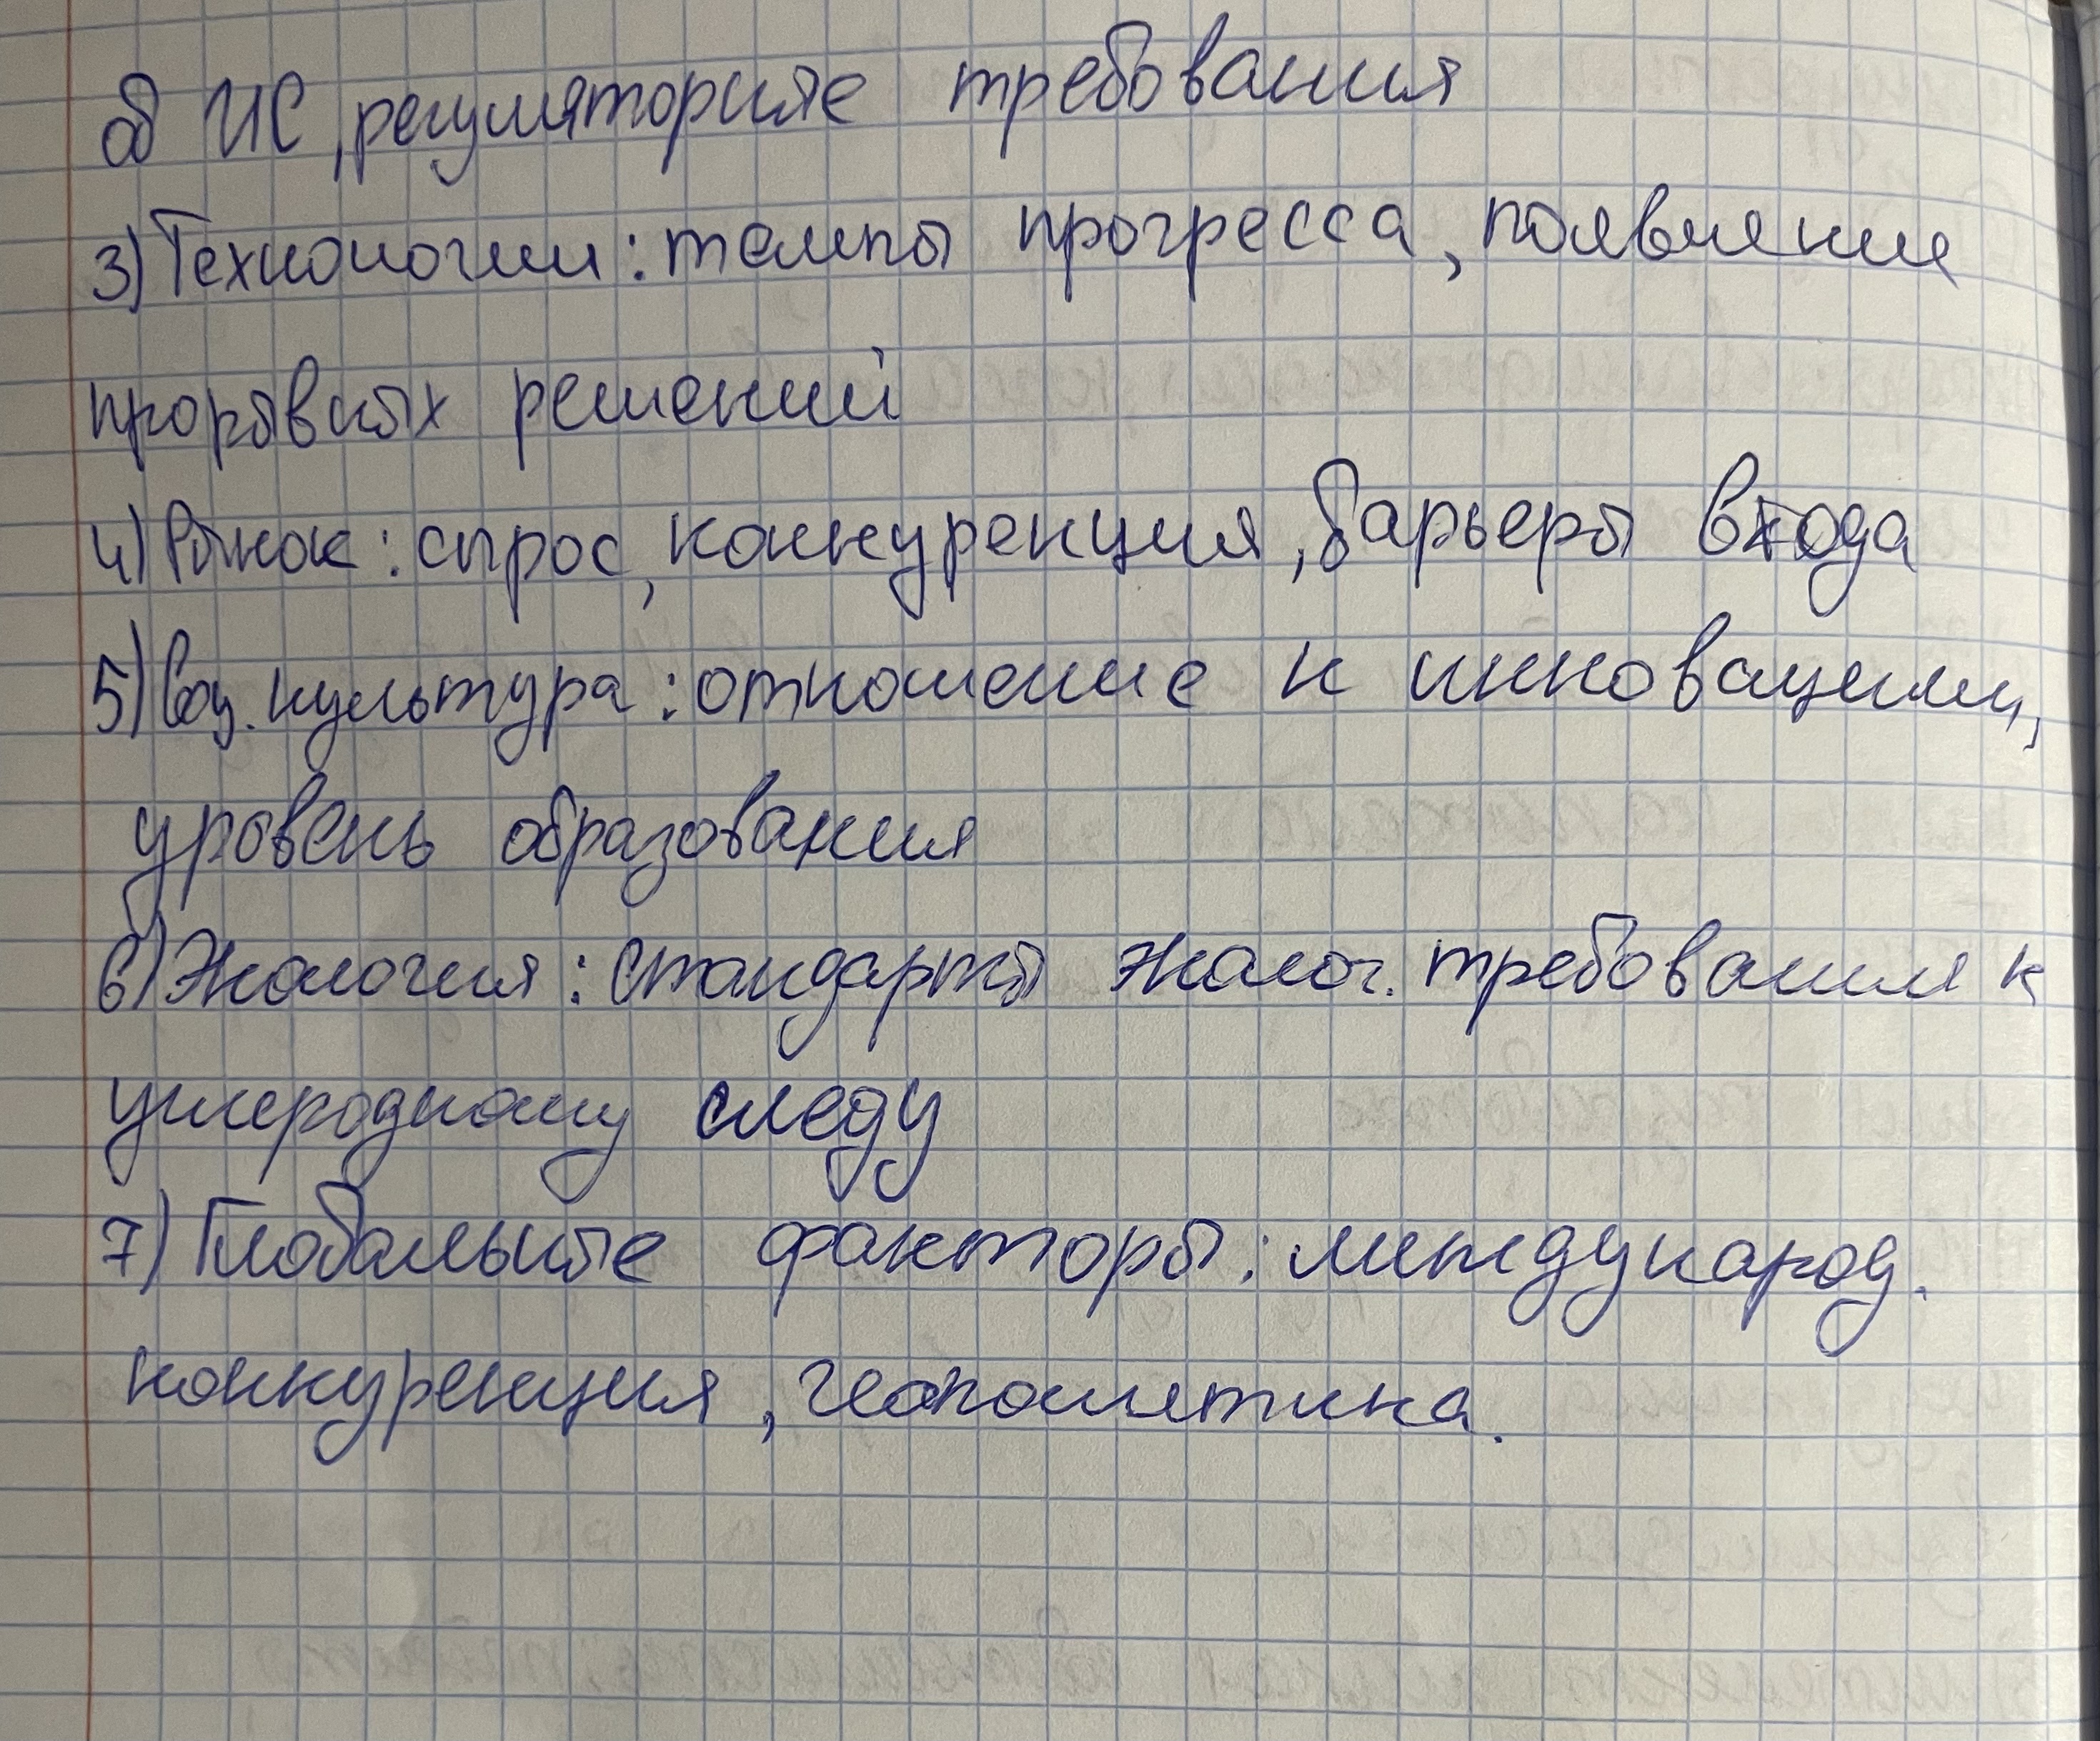 об ИС, регуляторные требования
3) Технологии: темпы прогресса, появление
прорывных решений
4) Рынок: спрос, конкуренция, барьеры входа
5) Соц. культура: отношение к инновациям,
уровень образования
6) Экология: стандарты эколог. требования к
углеродному следу
7) Глобальные факторы: международ.
конкуренция, геополитика.